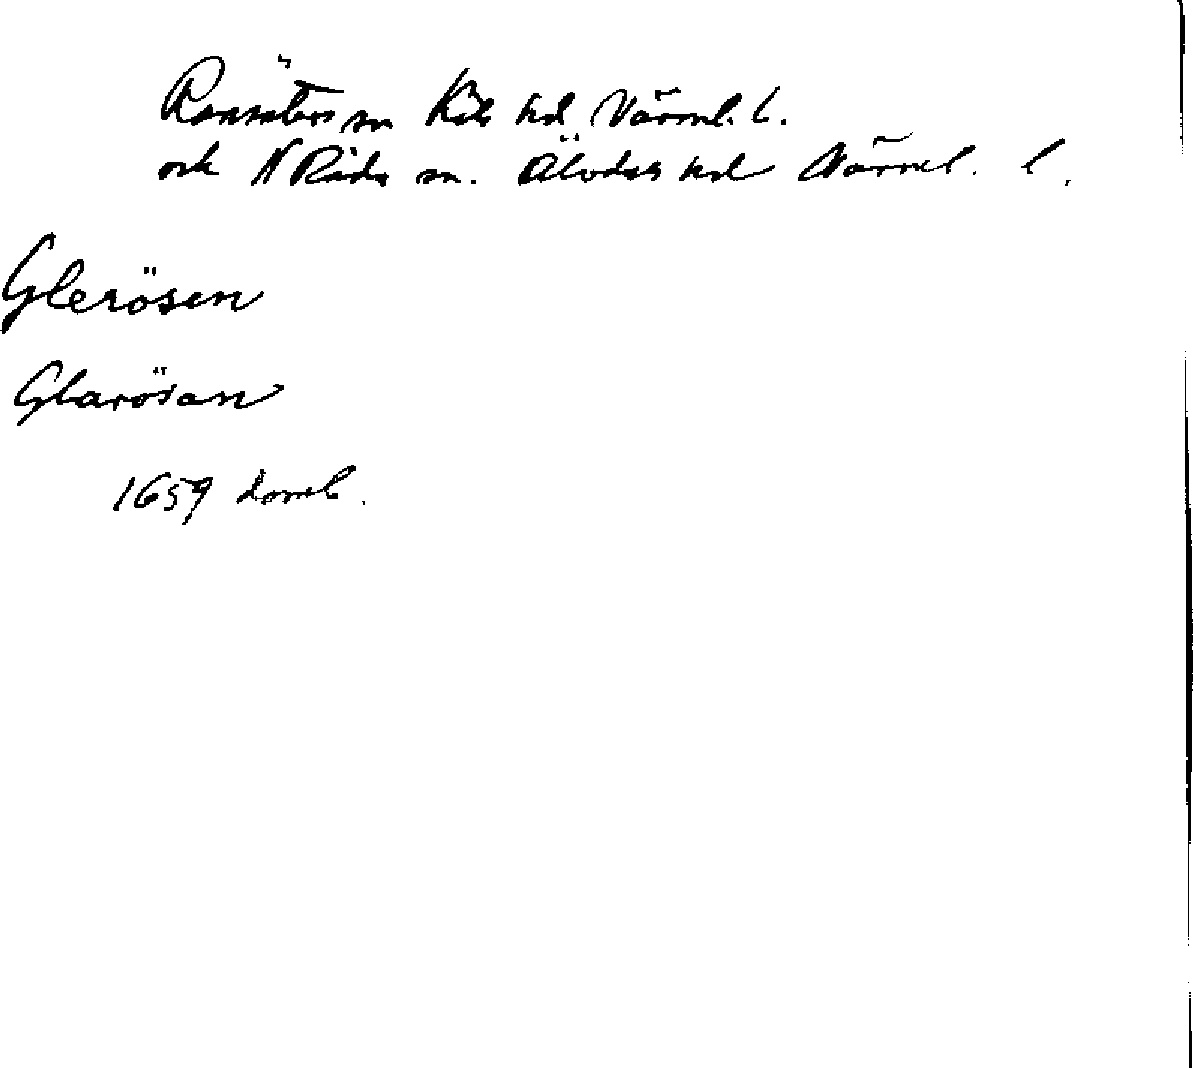 Ransäters sn Kils hd Värml. l.
och N Råda sn. Älvdals hd Värml. l.
Glerösen
Glarösan
1659 domb.